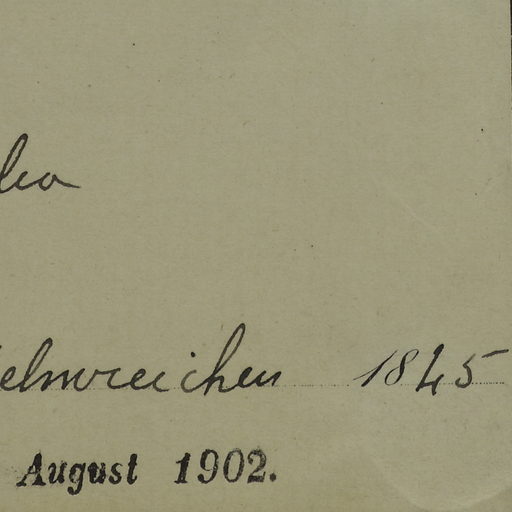 elmreichen 1845
August 1902.